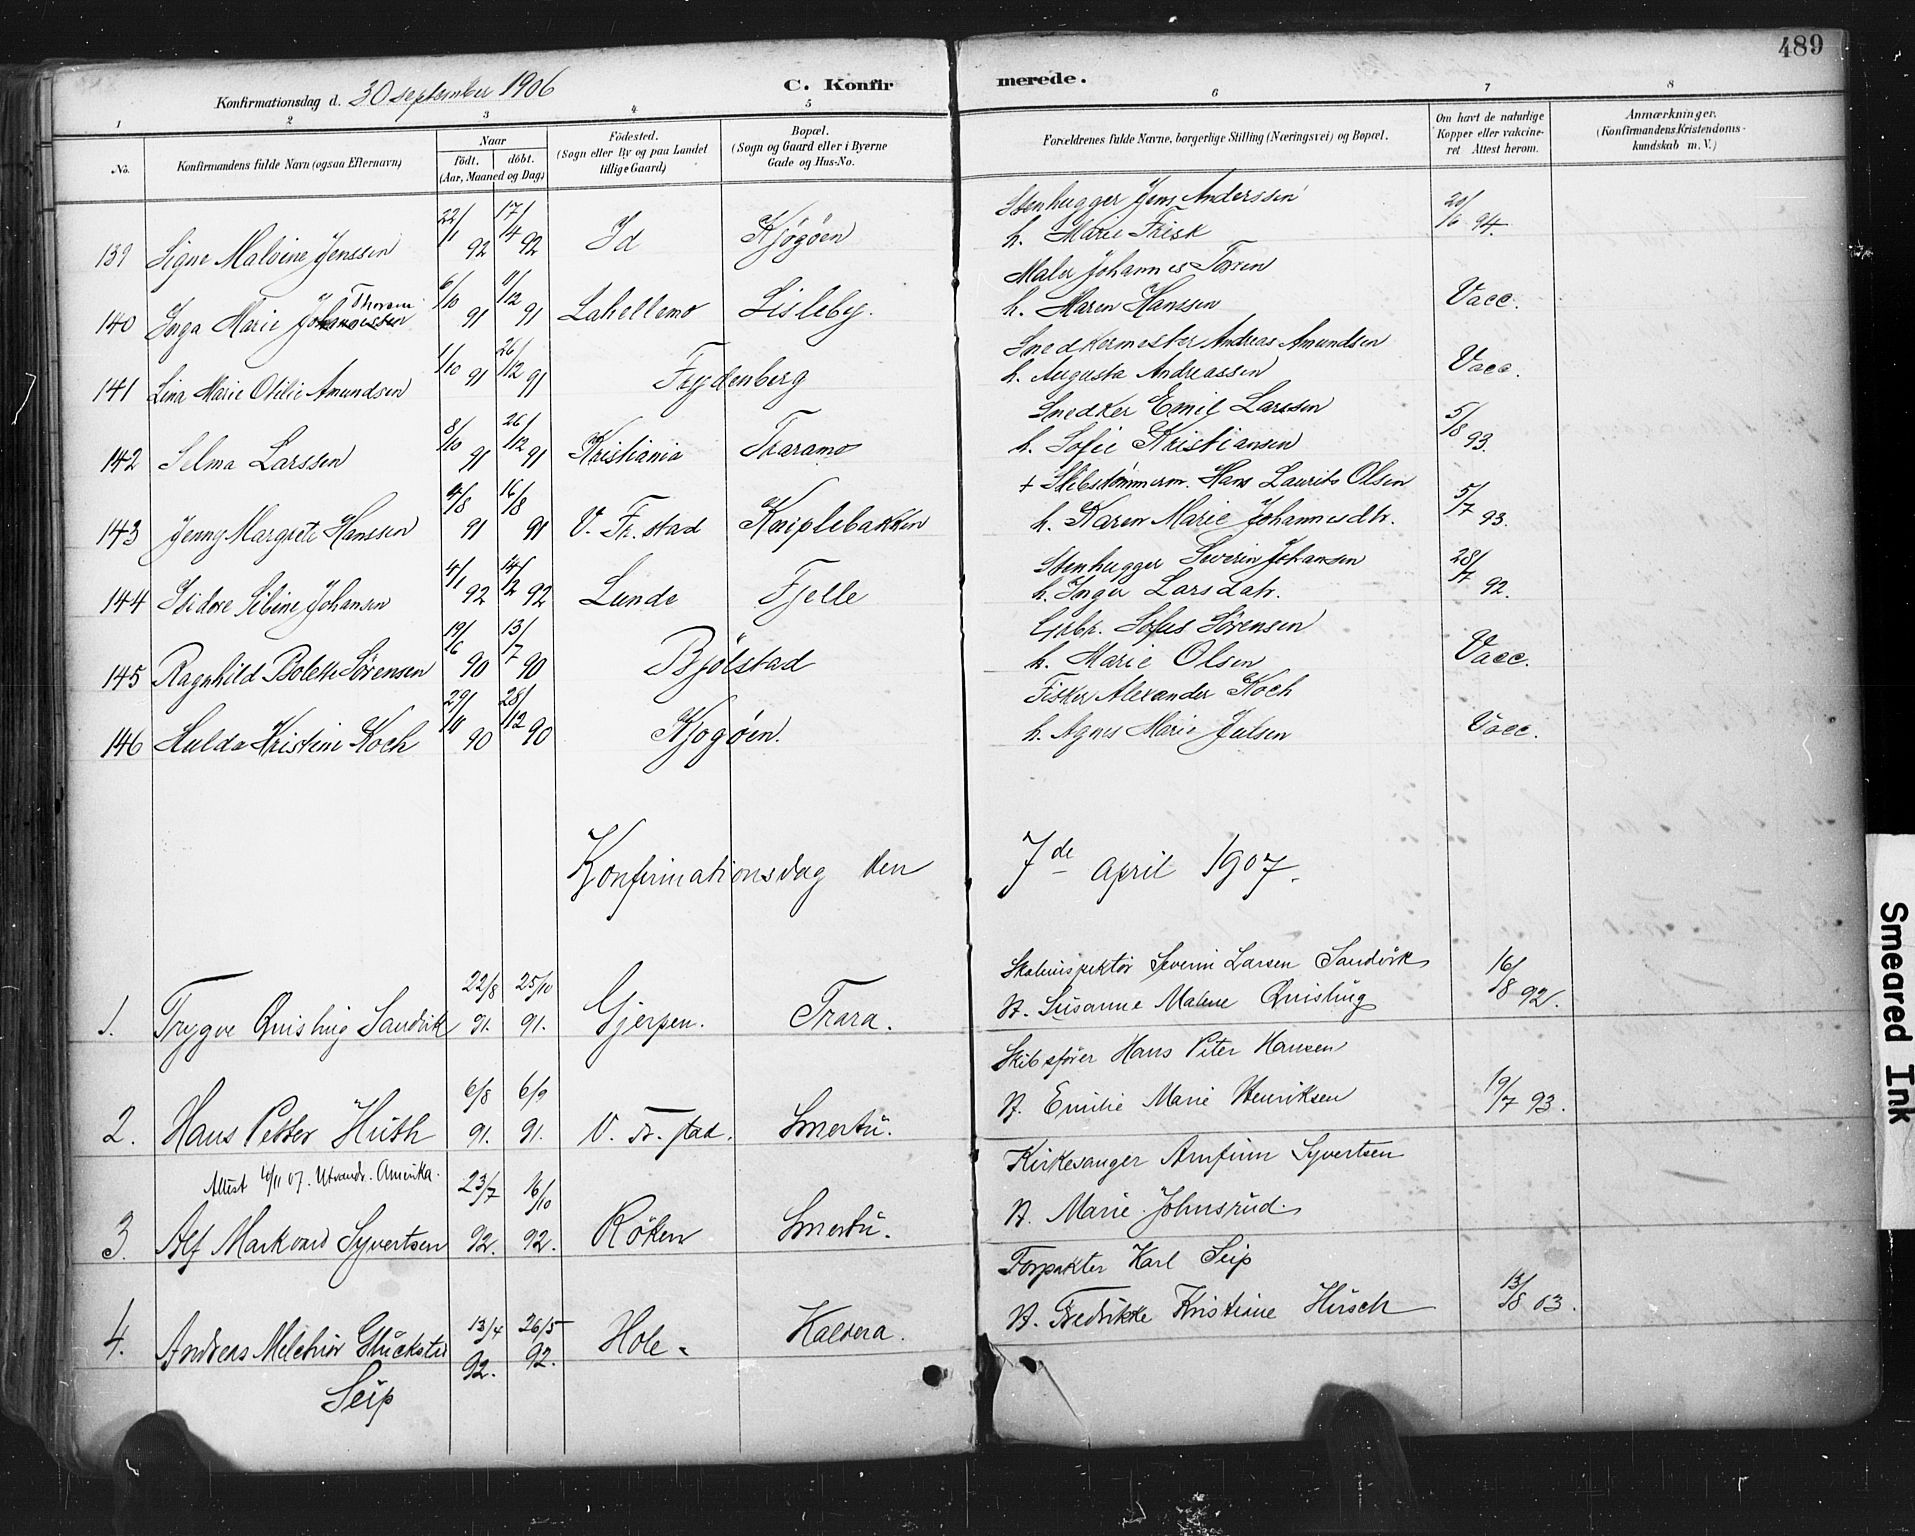 489
Konfirmationsdag d. 30 september 1906
C. Konfirmerede.
1 2 3 4 5 6 7 8
No.
Konfirmandens fulde Navn (ogsaa Efternavn)
Naar
födt. döbt.
(Aar, Maaned og Dag)
Födested.
(Sogn eller By og paa Landet
tillige Gaard)
Bopæl.
(Sogn og Gaard eller i Byerne
Gade og Hus-No.
Forældrenes fulde Navne, borgerlige Stilling (Næringsvei) og Bopæl.
Om havt de naturlige
Kopper eller vakcine-
ret Attest herom.
Anmærkninger.
(Konfirmandens Kristendoms-
kundskab m. V.)
139 Signe Malvine Jenssen 22/1 92 17/4 92 Id Kjøgøen Stenhugger Jens Anderssen
h. Marie Frisk 20/6 94.
140 Inga Marie Johannessen Thorsen 6/10 91 9/12 91 Lahellemo Lisleby. Maler Johannes Torren
h. Maren Hanssen Vacc.
141 Lina Marie Otilie Amundsen 1/10 91 26/12 91 Frydenberg Snedkermester Andreas Amundsen
h. Augusta Andreassen Vacc.
142 Selma Larssen 8/10 91 26/12 91 Kristiania Traramo Snedker Emil Larssen
h. Sofie Kristiansen 5/8 93.
143 Jenny Margrete Hanssen 4/8 91 16/8 91 V. Fr.stad Kniplebakken + Skibstömmerm. Hans Laurits Olsen
h. Karen Marie Johannesdtr. 5/7 93.
144 Isidore Sibine Johansen 4/1 92 14/2 92 Lunde Fjelle Stenhugger Severin Johansen
h. Inger Larsdatr. 28/7 92.
145 Ragnhild Bolette Sörensen 19/6 90 13/7 90 Bjölstad Grbr. Sofus Sörensen
h. Marie Olsen Vacc.
146 Hulda Kristine Koch 29/10 90 28/12 90 Kjøgöen. Fisker Alexander Koch
h. Agnes Marie Julsen Vacc.
Konfirmationsdag den 7de april 1907.
1. Trygve Quisling Sandvik 22/8 91. 25/10 91. Gjerpen. Trara. Skoleinspektör Severin Larsen Sandvik
H. Susanne Malene Quisling 16/8 92.
2. Hans Petter Huth 6/8 91. 6/9 91. V. Fr. stad. Smertu. Skibsfører Hans Peter Hansen
H. Emilie Marie Henriksen 19/7 93.
Attest 10/11 07. Utvandr. Amerika.
3. Alf Markvard Syvertsen 23/7 92. 16/10 92. Röken Smertu. Kirkesanger Arnfinn Syvertsen
H. Marie Johnsrud.
4. Andreas Melchior Glückstad Seip 13/4 92. 26/5 92. Hole. Kaldera. Forpakter Karl Seip
H. Fredrikke Kristiane Hirsch 13/8 03.
Smeared Ink